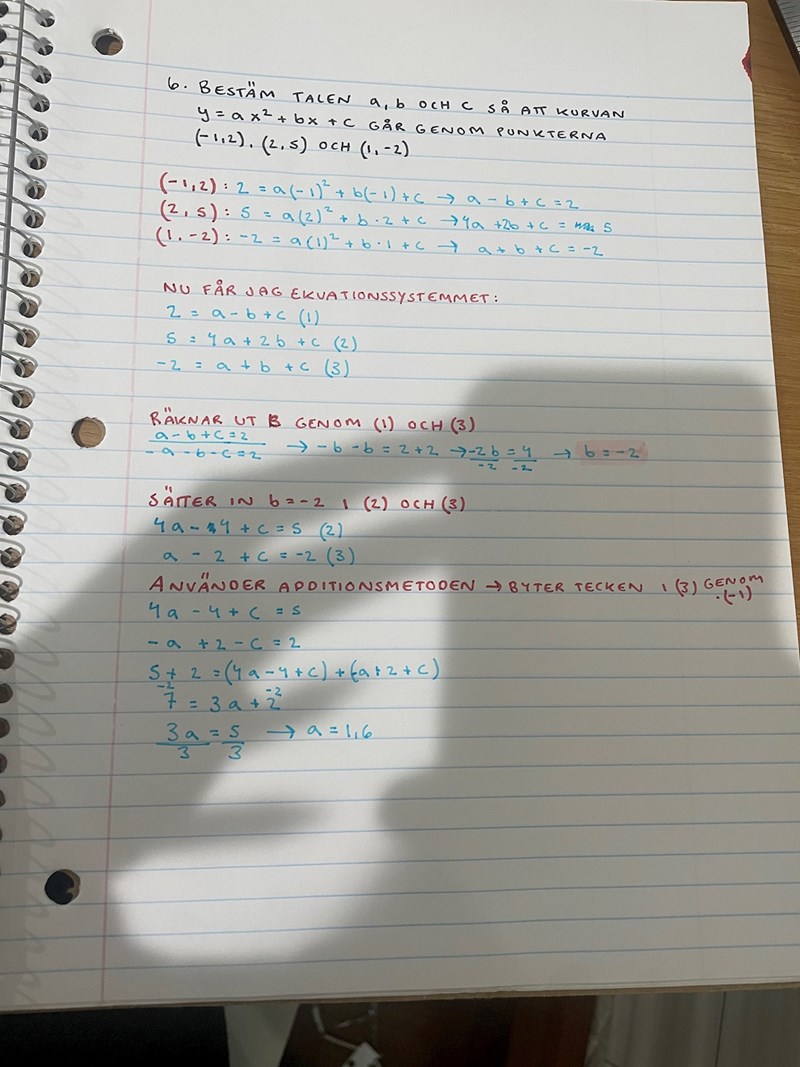 6. BESTÄM TALEN a, b OCH C SÅ ATT KURVAN
y = ax² + bx + c GÅR GENOM PUNKTERNA
(-1,2), (2,5) OCH (1,-2)
(-1,2): 2 = a(-1)² + b(-1) + c → a - b + c = 2
(2,5): 5 = a(2)² + b·2 + c → 4a + 2b + c = 5
(1,-2): -2 = a(1)² + b·1 + c → a + b + c = -2
NU FÅR JAG EKVATIONSSYSTEMMET:
2 = a - b + c (1)
5 = 4a + 2b + c (2)
-2 = a + b + c (3)
RÄKNAR UT B GENOM (1) OCH (3)
a - b + c = 2
-a - b - c = 2 → -b - b = 2 + 2 → -2b = 4 → b = -2
-2 -2
SÄTTER IN b = -2 I (2) OCH (3)
4a - 4 + c = 5 (2)
a - 2 + c = -2 (3)
ANVÄNDER ADDITIONSMETODEN → BYTER TECKEN I (3) GENOM
·(-1)
4a - 4 + c = 5
-a + 2 - c = 2
5 + 2 = (4a - 4 + c) + (-a + 2 + c)
-2 -2
7 = 3a + 2
3a = 5 → a = 1,6
3 3